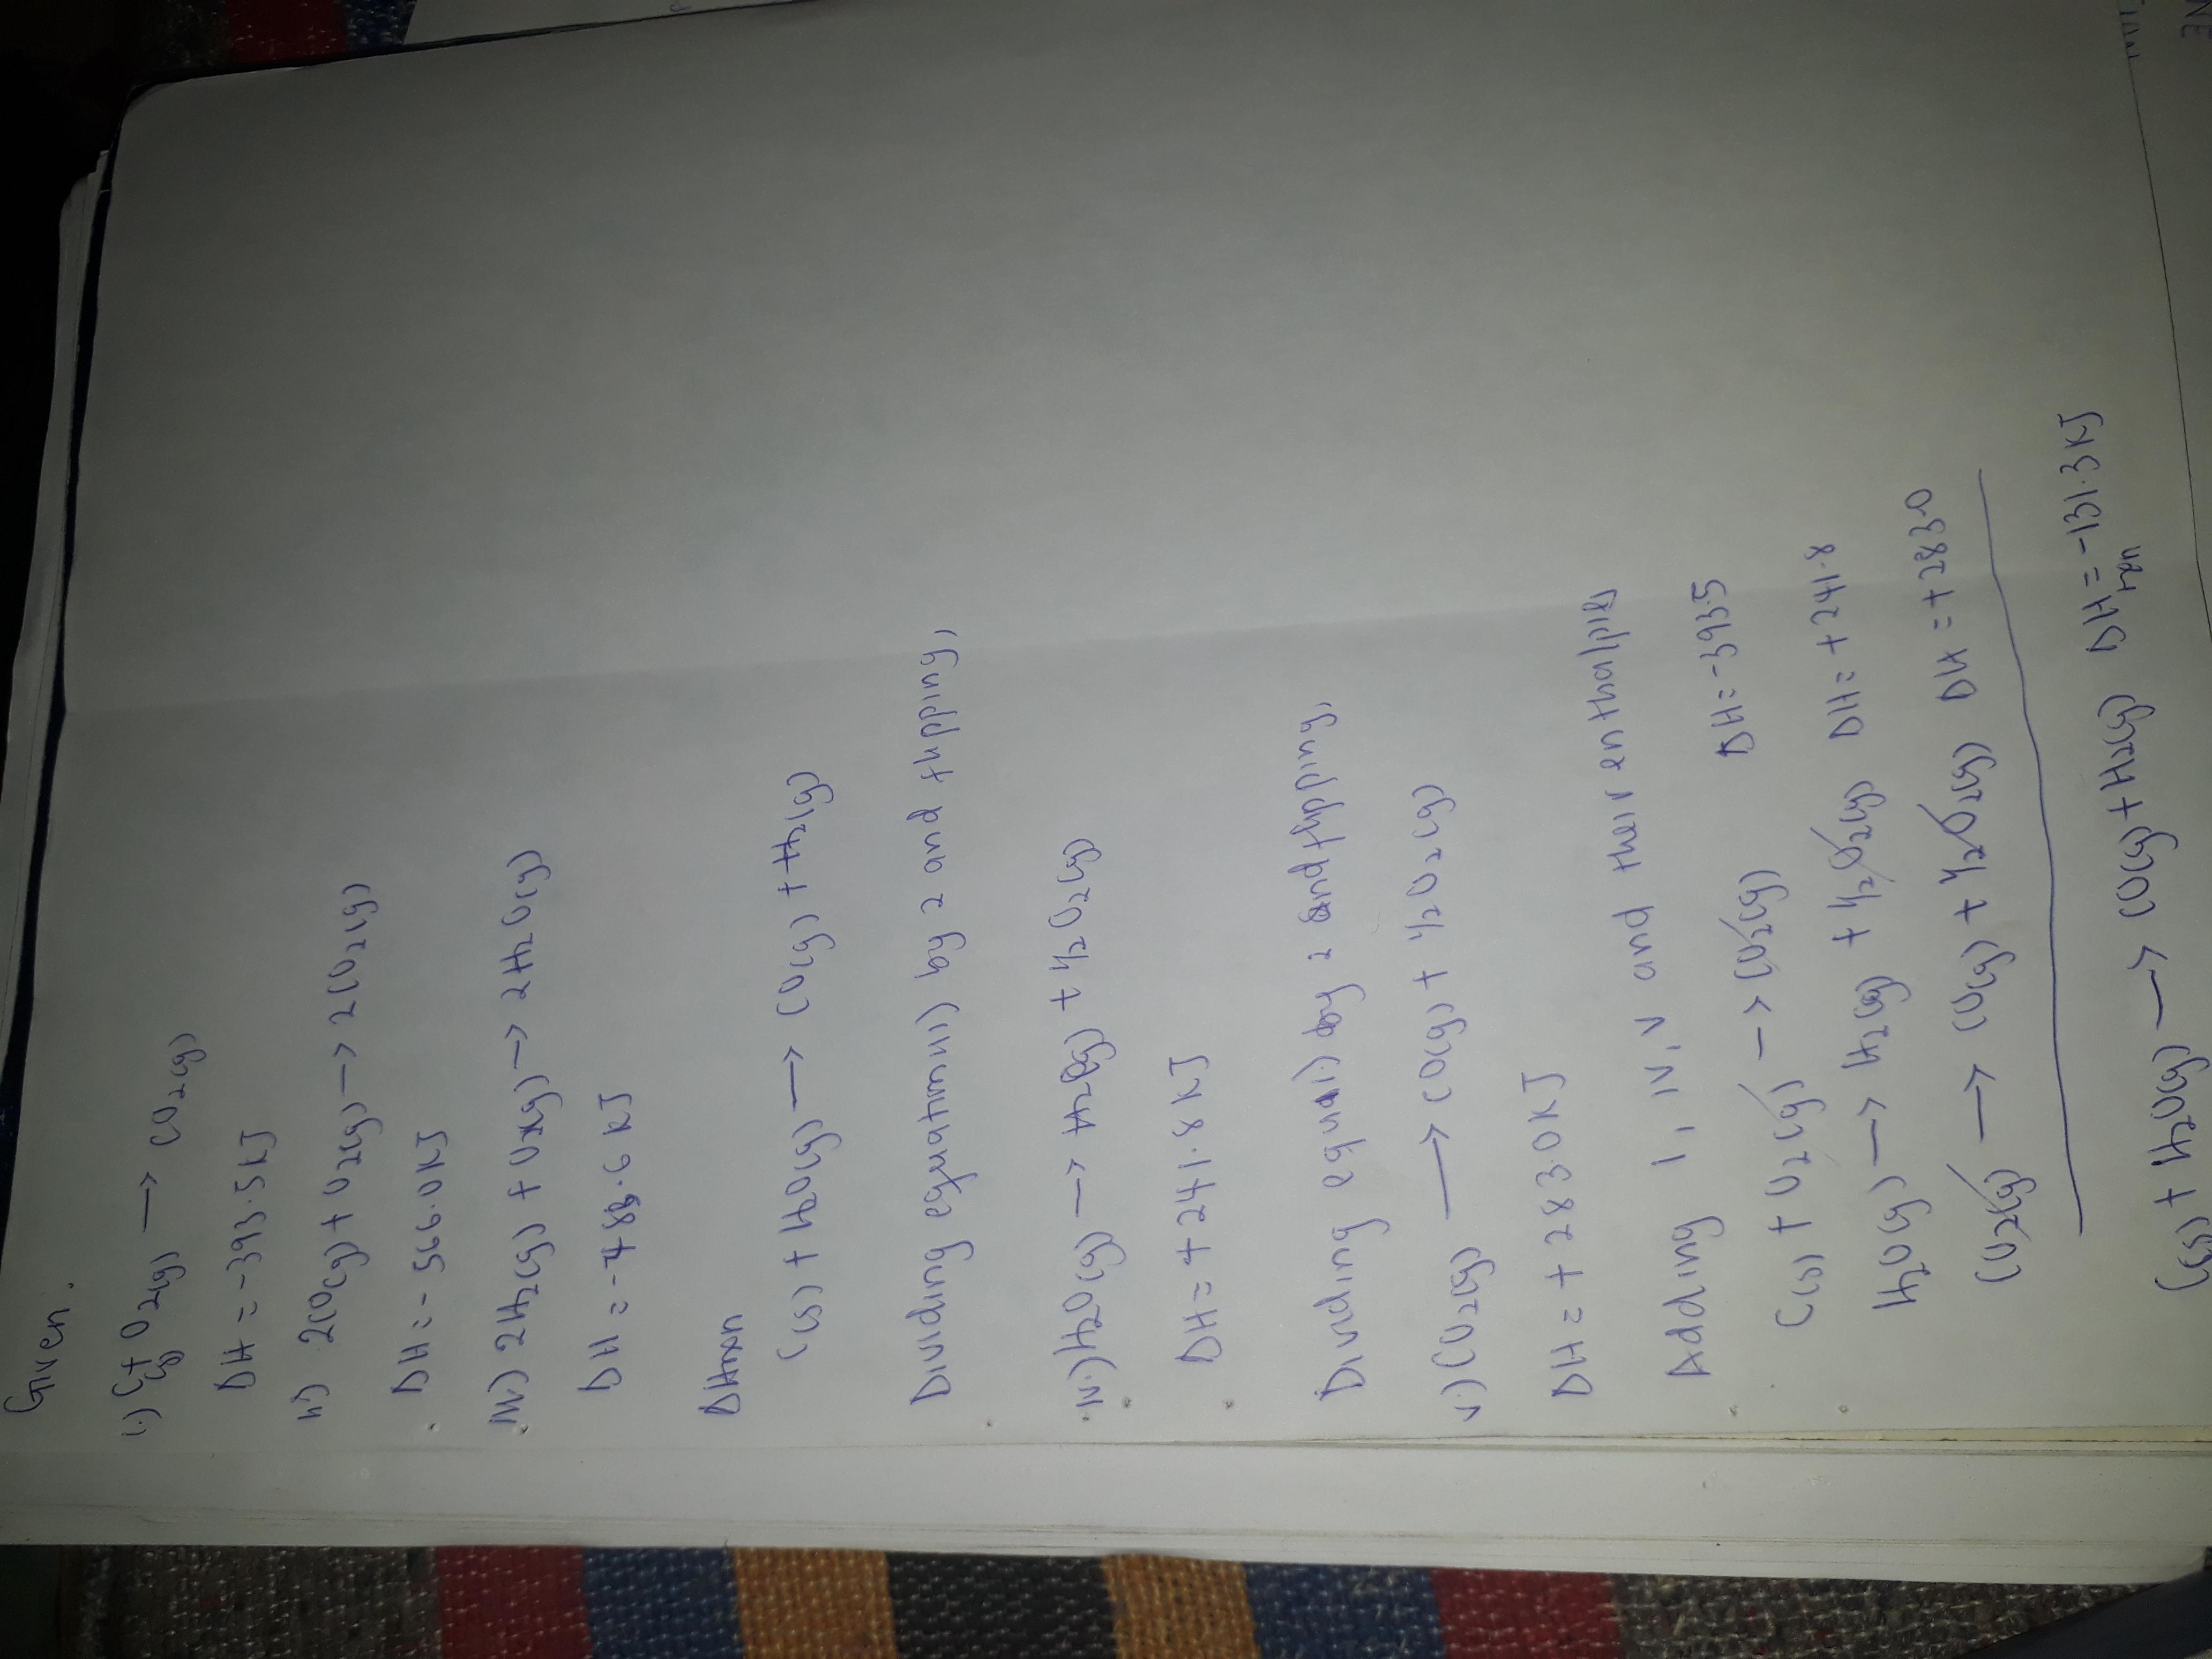 Given.
i.) C(s) + O2(g) → CO2(g)
ΔH = -393.5kJ
ii) 2CO(g) + O2(g) → 2CO2(g)
ΔH = -566.0kJ
iii) 2H2(g) + O2(g) → 2H2O(g)
ΔH = -483.6 kJ
ΔHrxn
C(s) + H2O(g) → CO(g) + H2(g)
Dividing equation iii) by 2 and flipping,
iv.) H2O(g) → H2(g) + 1/2 O2(g)
ΔH = +241.8 kJ
Dividing equ ii) by 2 and flipping,
v.) CO2(g) → CO(g) + 1/2 O2(g)
ΔH = +283.0kJ
Adding i, iv, v and their enthalpies
C(s) + O2(g) → CO2(g) ΔH = -393.5
H2O(g) → H2(g) + 1/2 O2(g) ΔH = +241.8
CO2(g) → CO(g) + 1/2 O2(g) ΔH = +283.0
C(s) + H2O(g) → CO(g) + H2(g) ΔHrxn = -131.3kJ